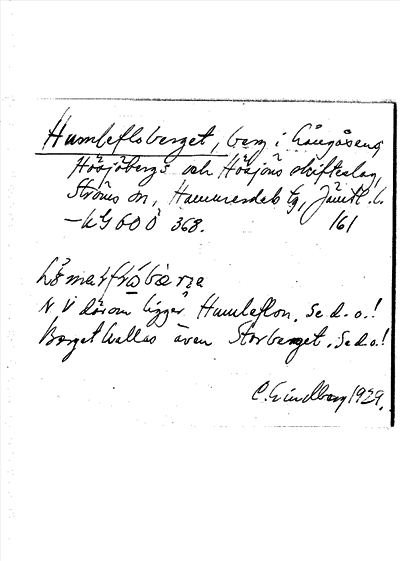 Humlefloberget, berg i Långåsens,
Högsjöbergs och Högsjöns skifteslag,
Ströms sn, Hammerdals tg, Jämtl. l.
– KG 60 Ö 368. 161
N V därom ligger Humleflon. Se d. o.!
Berget kallas även Storberget. Se d. o.!
C. Lindberg 1929.